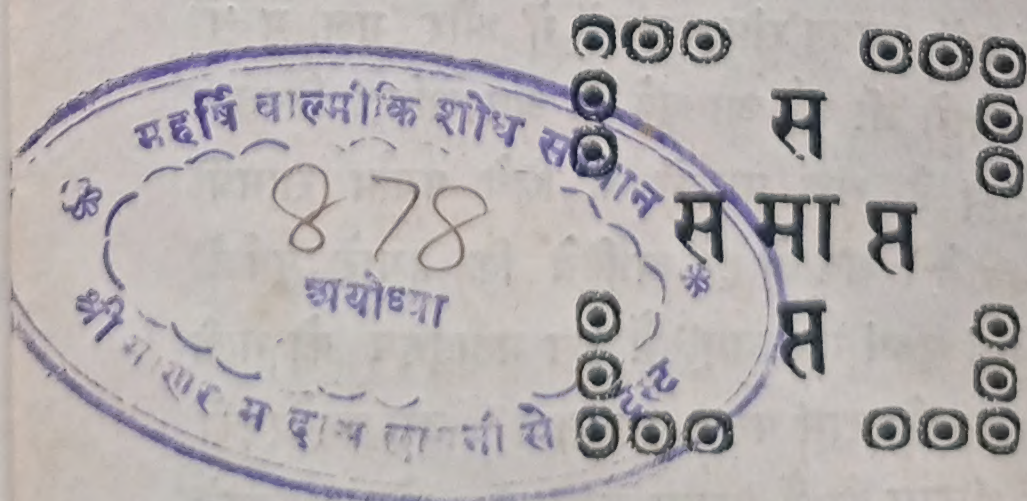 महर्षि वाल्मीकि शोध
878
अयोध्या
श्री
से
स
स मा प्त
प्त